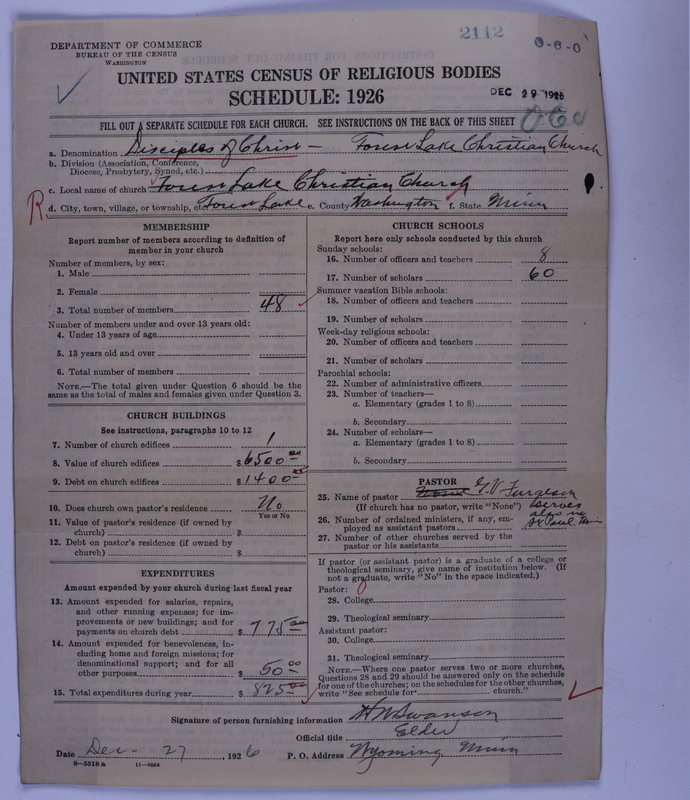 2112
0-6-0
DEPARTMENT OF COMMERCE
BUREAU OF THE CENSUS
WASHINGTON
UNITED STATES CENSUS OF RELIGIOUS BODIES
SCHEDULE: 1926
DEC 29 1926
FILL OUT A SEPARATE SCHEDULE FOR EACH CHURCH. SEE INSTRUCTIONS ON THE BACK OF THIS SHEET
a. Denomination Disciples of Christ - Forest Lake Christian Church
b. Division (Association, Conference, Diocese, Presbytery, Synod, etc.)
c. Local name of church Forest Lake Christian Church
R d. City, town, village, or township, etc. Forest Lake e. County Washington f. State Minn
MEMBERSHIP
Report number of members according to definition of
member in your church
Number of members, by sex:
1. Male
2. Female
3. Total number of members 48
Number of members under and over 13 years old:
4. Under 13 years of age
5. 13 years old and over
6. Total number of members
NOTE.—The total given under Question 6 should be
same as the total of males and females given under Question 3.
CHURCH BUILDINGS
See instructions, paragraphs 10 to 12
7. Number of church edifices 1
8. Value of church edifices $6500.00
9. Debt on church edifices $1400.00
10. Does church own pastor's residence? No
Yes or No
11. Value of pastor's residence (if owned by
church) $
12. Debt on pastor's residence (if owned by
church) $
EXPENDITURES
Amount expended by your church during last fiscal year
13. Amount expended for salaries, repairs,
and other running expenses; for im-
provements or new buildings; and for
payments on church debt $775.00
14. Amount expended for benevolences, in-
cluding home and foreign missions; for
denominational support; and for all
other purposes $50.00
15. Total expenditures during year $825.00
CHURCH SCHOOLS
Report here only schools conducted by this church
Sunday schools:
16. Number of officers and teachers 8
17. Number of scholars 60
Summer vacation Bible schools:
18. Number of officers and teachers
19. Number of scholars
Week-day religious schools:
20. Number of officers and teachers
21. Number of scholars
Parochial schools:
22. Number of administrative officers
23. Number of teachers—
a. Elementary (grades 1 to 8)
b. Secondary
24. Number of scholars—
a. Elementary (grades 1 to 8)
b. Secondary
PASTOR
25. Name of pastor G.V. Furgeson
(If church has no pastor, write "None") serves
also in
St Paul. Min
26. Number of ordained ministers, if any, em-
ployed as assistant pastors
27. Number of other churches served by the
pastor or his assistants
If pastor (or assistant pastor) is a graduate of a college or
theological seminary, give name of institution below. (If
not a graduate, write "No" in the space indicated.)
Pastor:
28. College
29. Theological seminary
Assistant pastor:
30. College
31. Theological seminary
NOTE.—Where one pastor serves two or more churches,
Questions 28 and 29 should be answered only on the schedule
for one of the churches; on the schedules for the other churches,
write "See schedule for church."
Signature of person furnishing information H N Swanson
Official title Elder
Date Dec- 27, 1926 P. O. Address Wyoming Minn
8—5518 a 11—9024